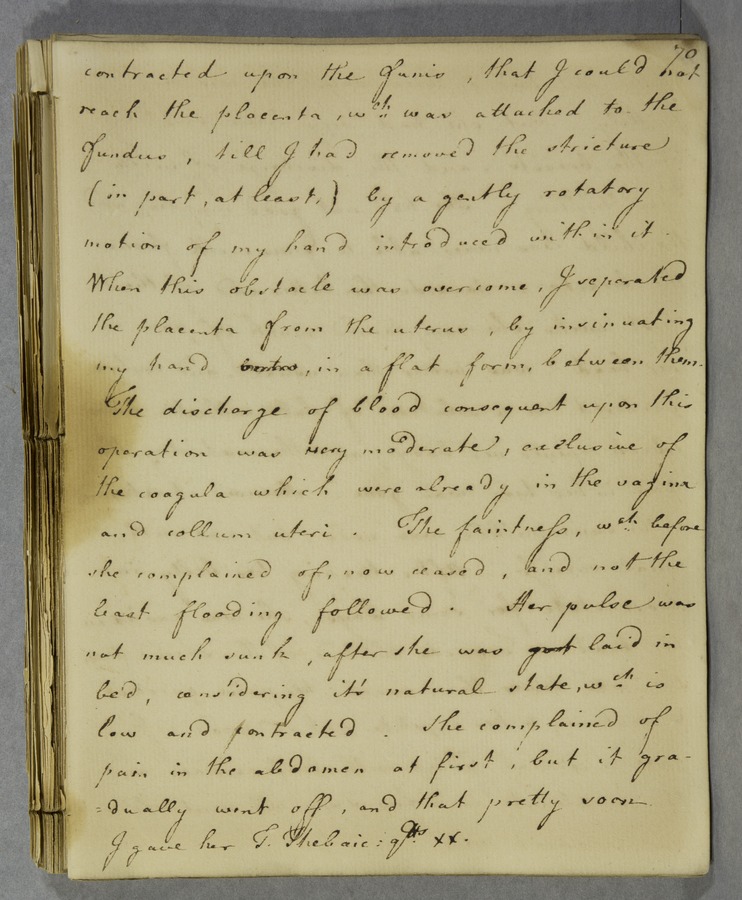 70
contracted upon the funis, that I could not
reach the placenta, wch was attached to the
fundus, till I had removed the stricture
(in part, at least,) by a gently rotatory
motion of my hand introduced within it.
When this obstacle was overcome, I seperated
the placenta from the uterus, by insinuating
my hand, in a flat form, between them.
The discharge of blood consequent upon this
operation was very moderate, exclusive of
the coagula which were already in the vagina
and collum uteri. The faintness, wch before
she complained of, now ceased, and not the
least flooding followed. Her pulse was
not much sunk, after she was got laid in
bed, considering it's natural state, wch is
low and contracted. She complained of
pain in the abdomen at first, but it gra-
=dually went off, and that pretty soon.
I gave her T. Thebaic: gtts xx.